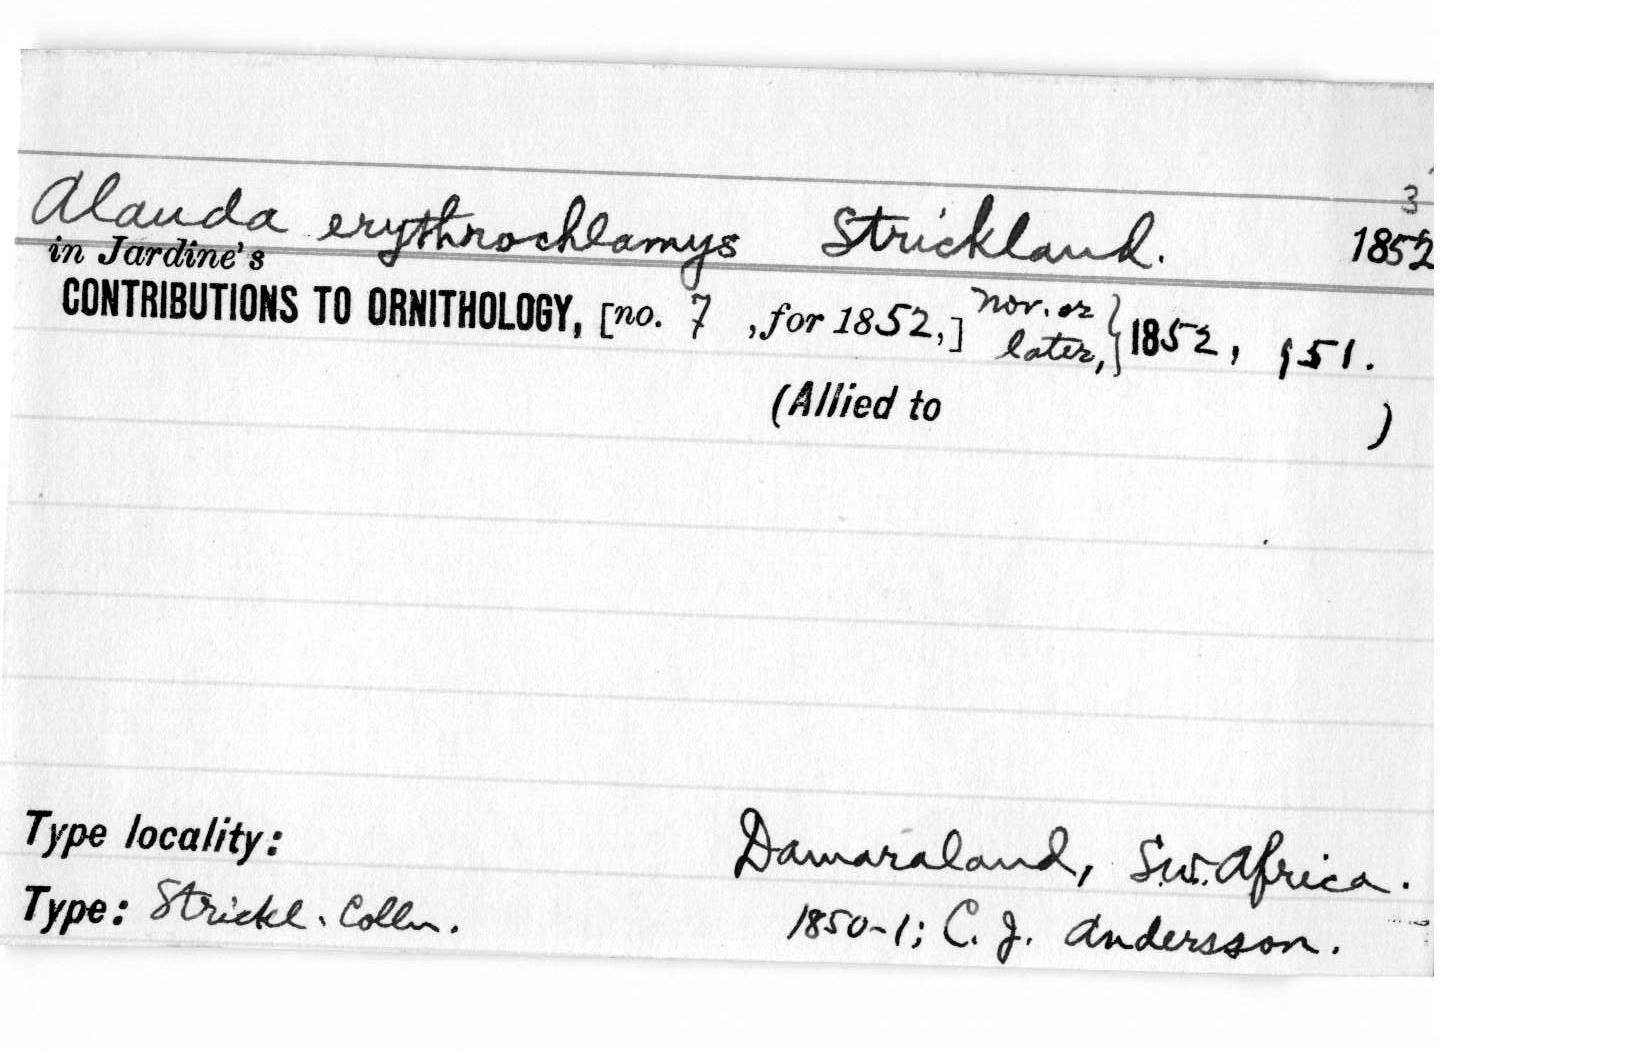 3
Alauda erythrochlamys Strickland. 1852
in Jardine's
CONTRIBUTIONS TO ORNITHOLOGY, [no. 7 , for 1852,] nov. or later,} 1852, 151.
(Allied to )
Type locality: Damaraland, S.W. Africa.
Type: Strickl. Colln. 1850-1; C. J. Andersson.